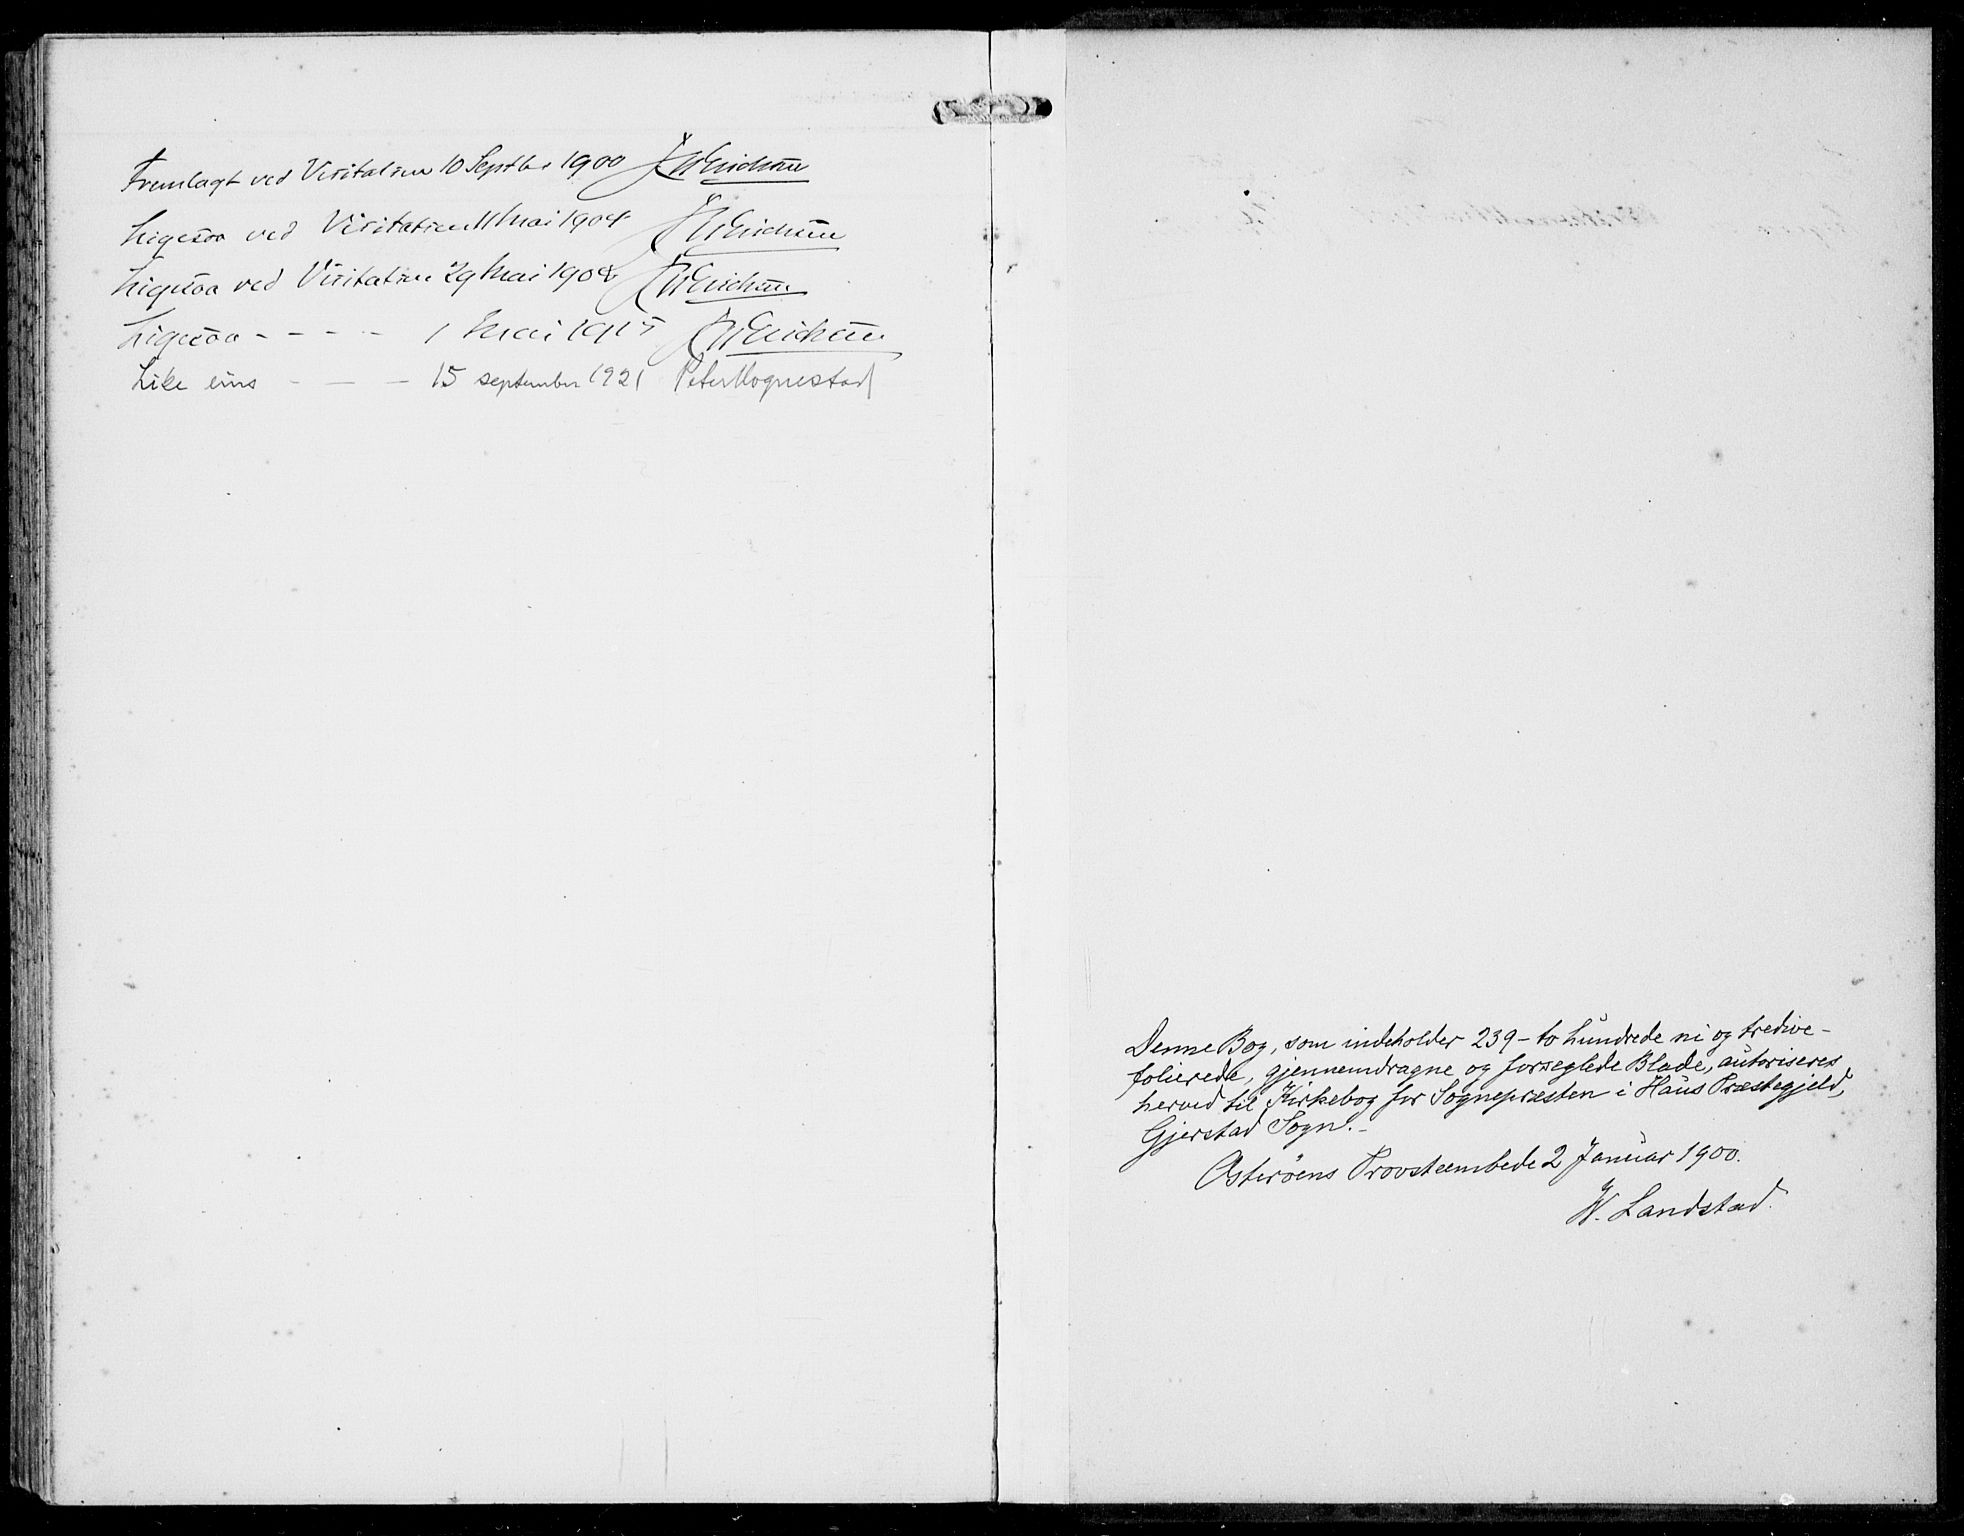 Fremlagt ved Visitatsen 10 Septbr 1900 J W Erichsen
Ligesaa ved Visitatsen 11 Mai 1904 J W Erichsen
Ligesaa ved Visitatsen 29 Mai 1908 J W Erichsen
Ligesaa - - - - 1 Mai 1915 J W Erichsen
Like eins - - - 15 september 1921 Peter Hognestad
Denne Bog, som indeholder 239 - to hundrede ni og tredive -
folierede, gjennemdragne og forseglede Blade, autoriseres
herved til Kirkebog for Sognepræsten i Haus Præstegjeld,
Gjerstad Sogn. -
Osterøens Provsteembede 2 Januar 1900.
W. Landstad.